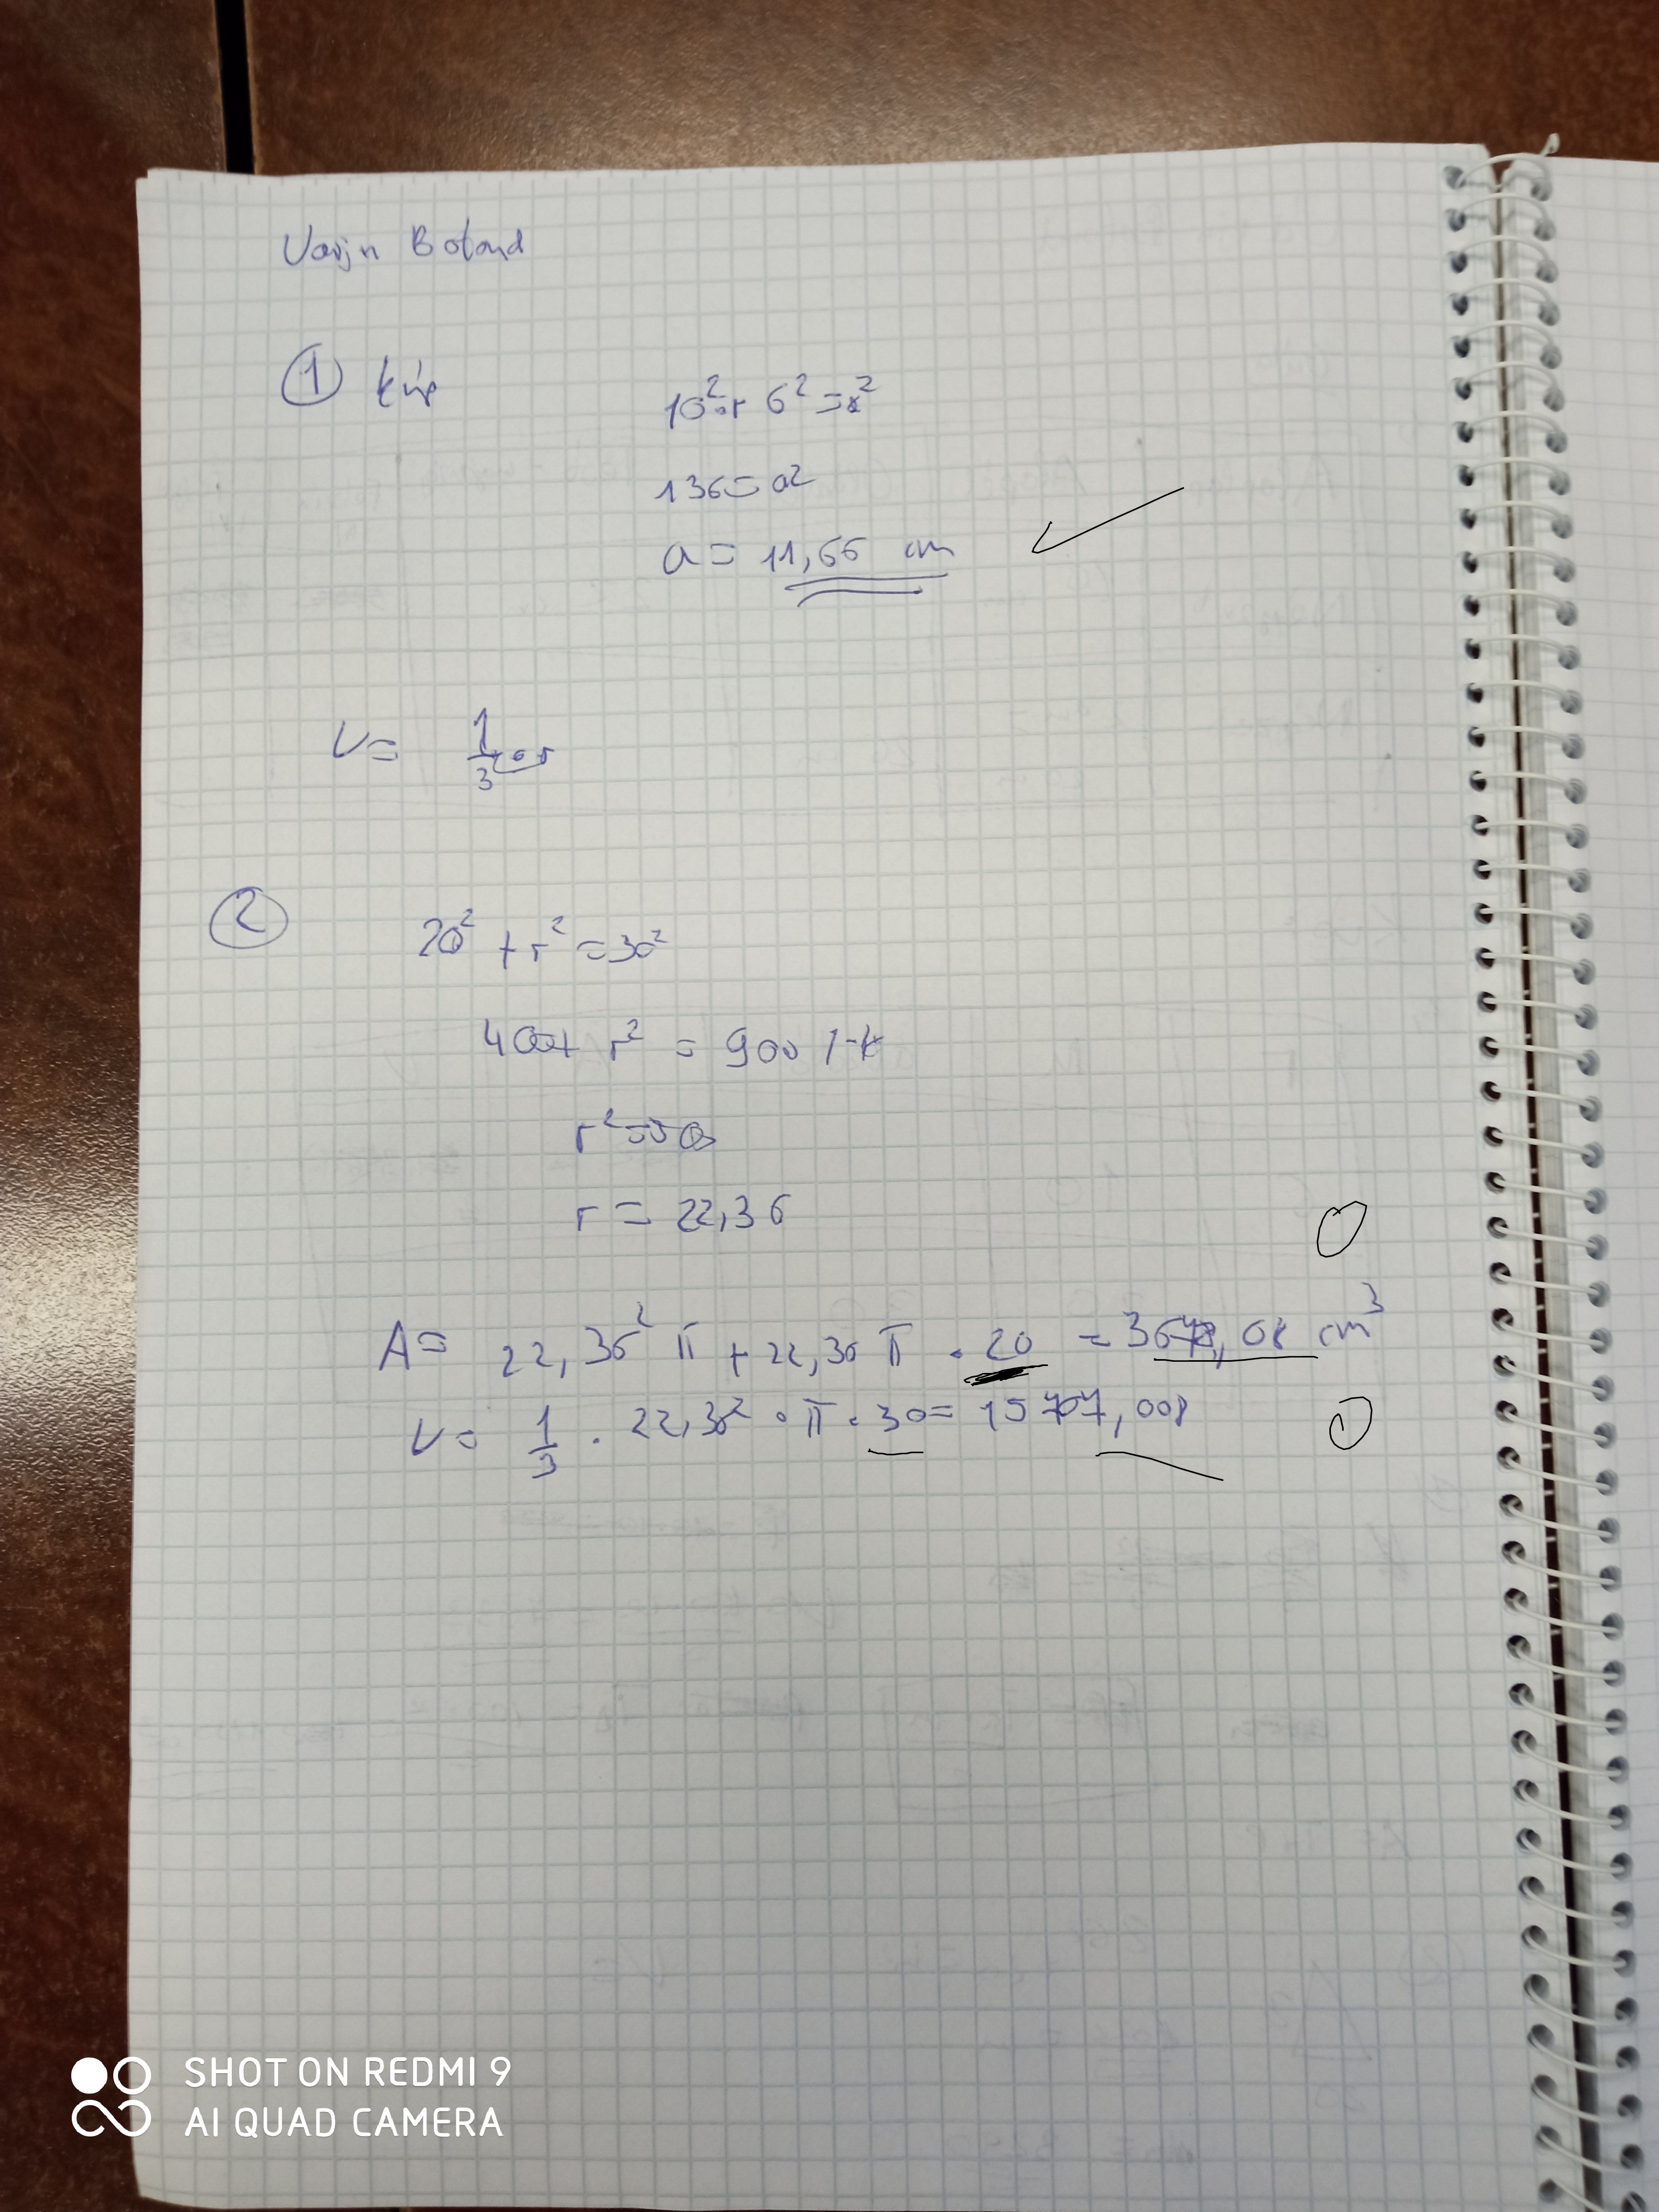 Varjn Botond
① kúp
10² + 6² = x²
136 = a²
a = 11,66 cm
V = 1/3
②
20² + r² = 30²
400 + r² = 900
r² = 500
r = 22,36
A = 22,36² π + 22,36 π · 20 = 3678,08 cm³
V = 1/3 · 22,36² · π · 30 = 15707,008
SHOT ON REDMI 9
AI QUAD CAMERA